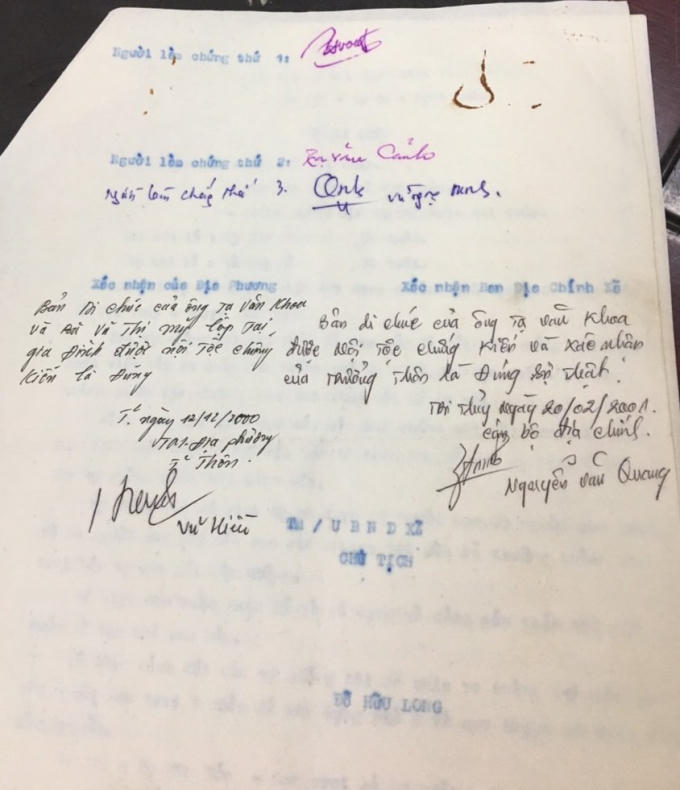 Người làm chứng thứ 1:
Người làm chứng thứ 2: Tạ văn Cảnh
Người làm chứng thứ 3.
Xác nhận của Địa Phương
Bản Di chúc của ông Tạ Văn Khoa
và Bà Vũ Thị Mỹ lập tại
gia Đình được nội Tộc chứng
Kiến là Đúng
T. ngày 12/12/2000
TM. Địa phương
Thôn.
Vũ Kiều
Xác nhận Ban Địa Chính Xã
Bản di chúc của ông Tạ Văn Khoa
được Nội Tộc chứng Kiến và Xác nhận
của Trưởng Thôn là Đúng Sự Thật.
Ngày 20/02/2001.
cán bộ địa chính.
Nguyễn Văn Quang
TM/UBND XÃ
CHỦ TỊCH
ĐỖ HỮU LONG